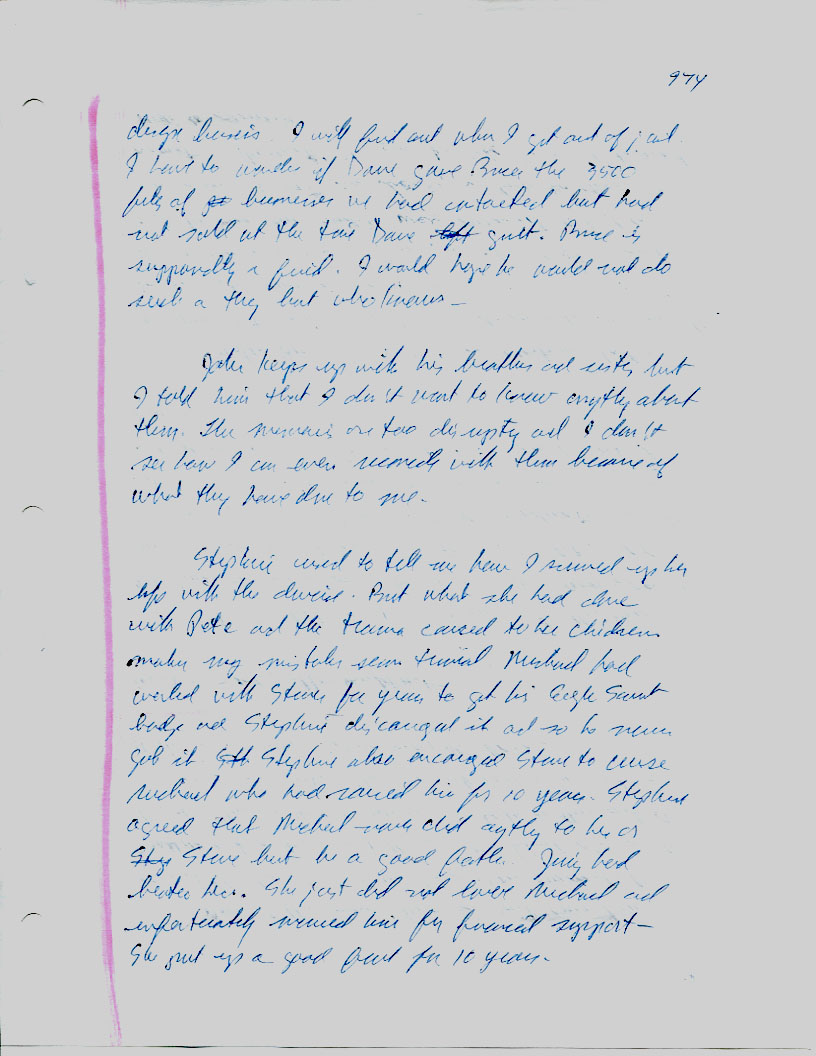 974
design business. I will find out when I get out of jail.
I have to wonder if Dave gave Bruce the 3500
files of businesses we had contacted but had
not sold at the time Dave left quit. Bruce is
supposedly a friend. I would hope he would not do
such a thing but who knows —
John keeps up with his brother and sister but
I told him that I don't want to know anything about
them. The memories are too disrupting and I don't
see how I can ever reconcile with them because of
what they have done to me.
Stephanie used to tell me how I ruined up her
life with the divorce. But what she had done
with Pete and the trauma caused to her children
makes my mistakes seem trivial. Michael had
worked with Steve for years to get his Eagle Scout
badge and Stephanie discouraged it and so he never
got it. Stephanie also encouraged Steve to
Michael who had raised him for 10 years. Stephanie
agreed that Michael never did anything to her or
Steve but be a good father. had
beaten her. She just did not love Michael and
unfortunately married him for financial support —
She put up a good front for 10 years.